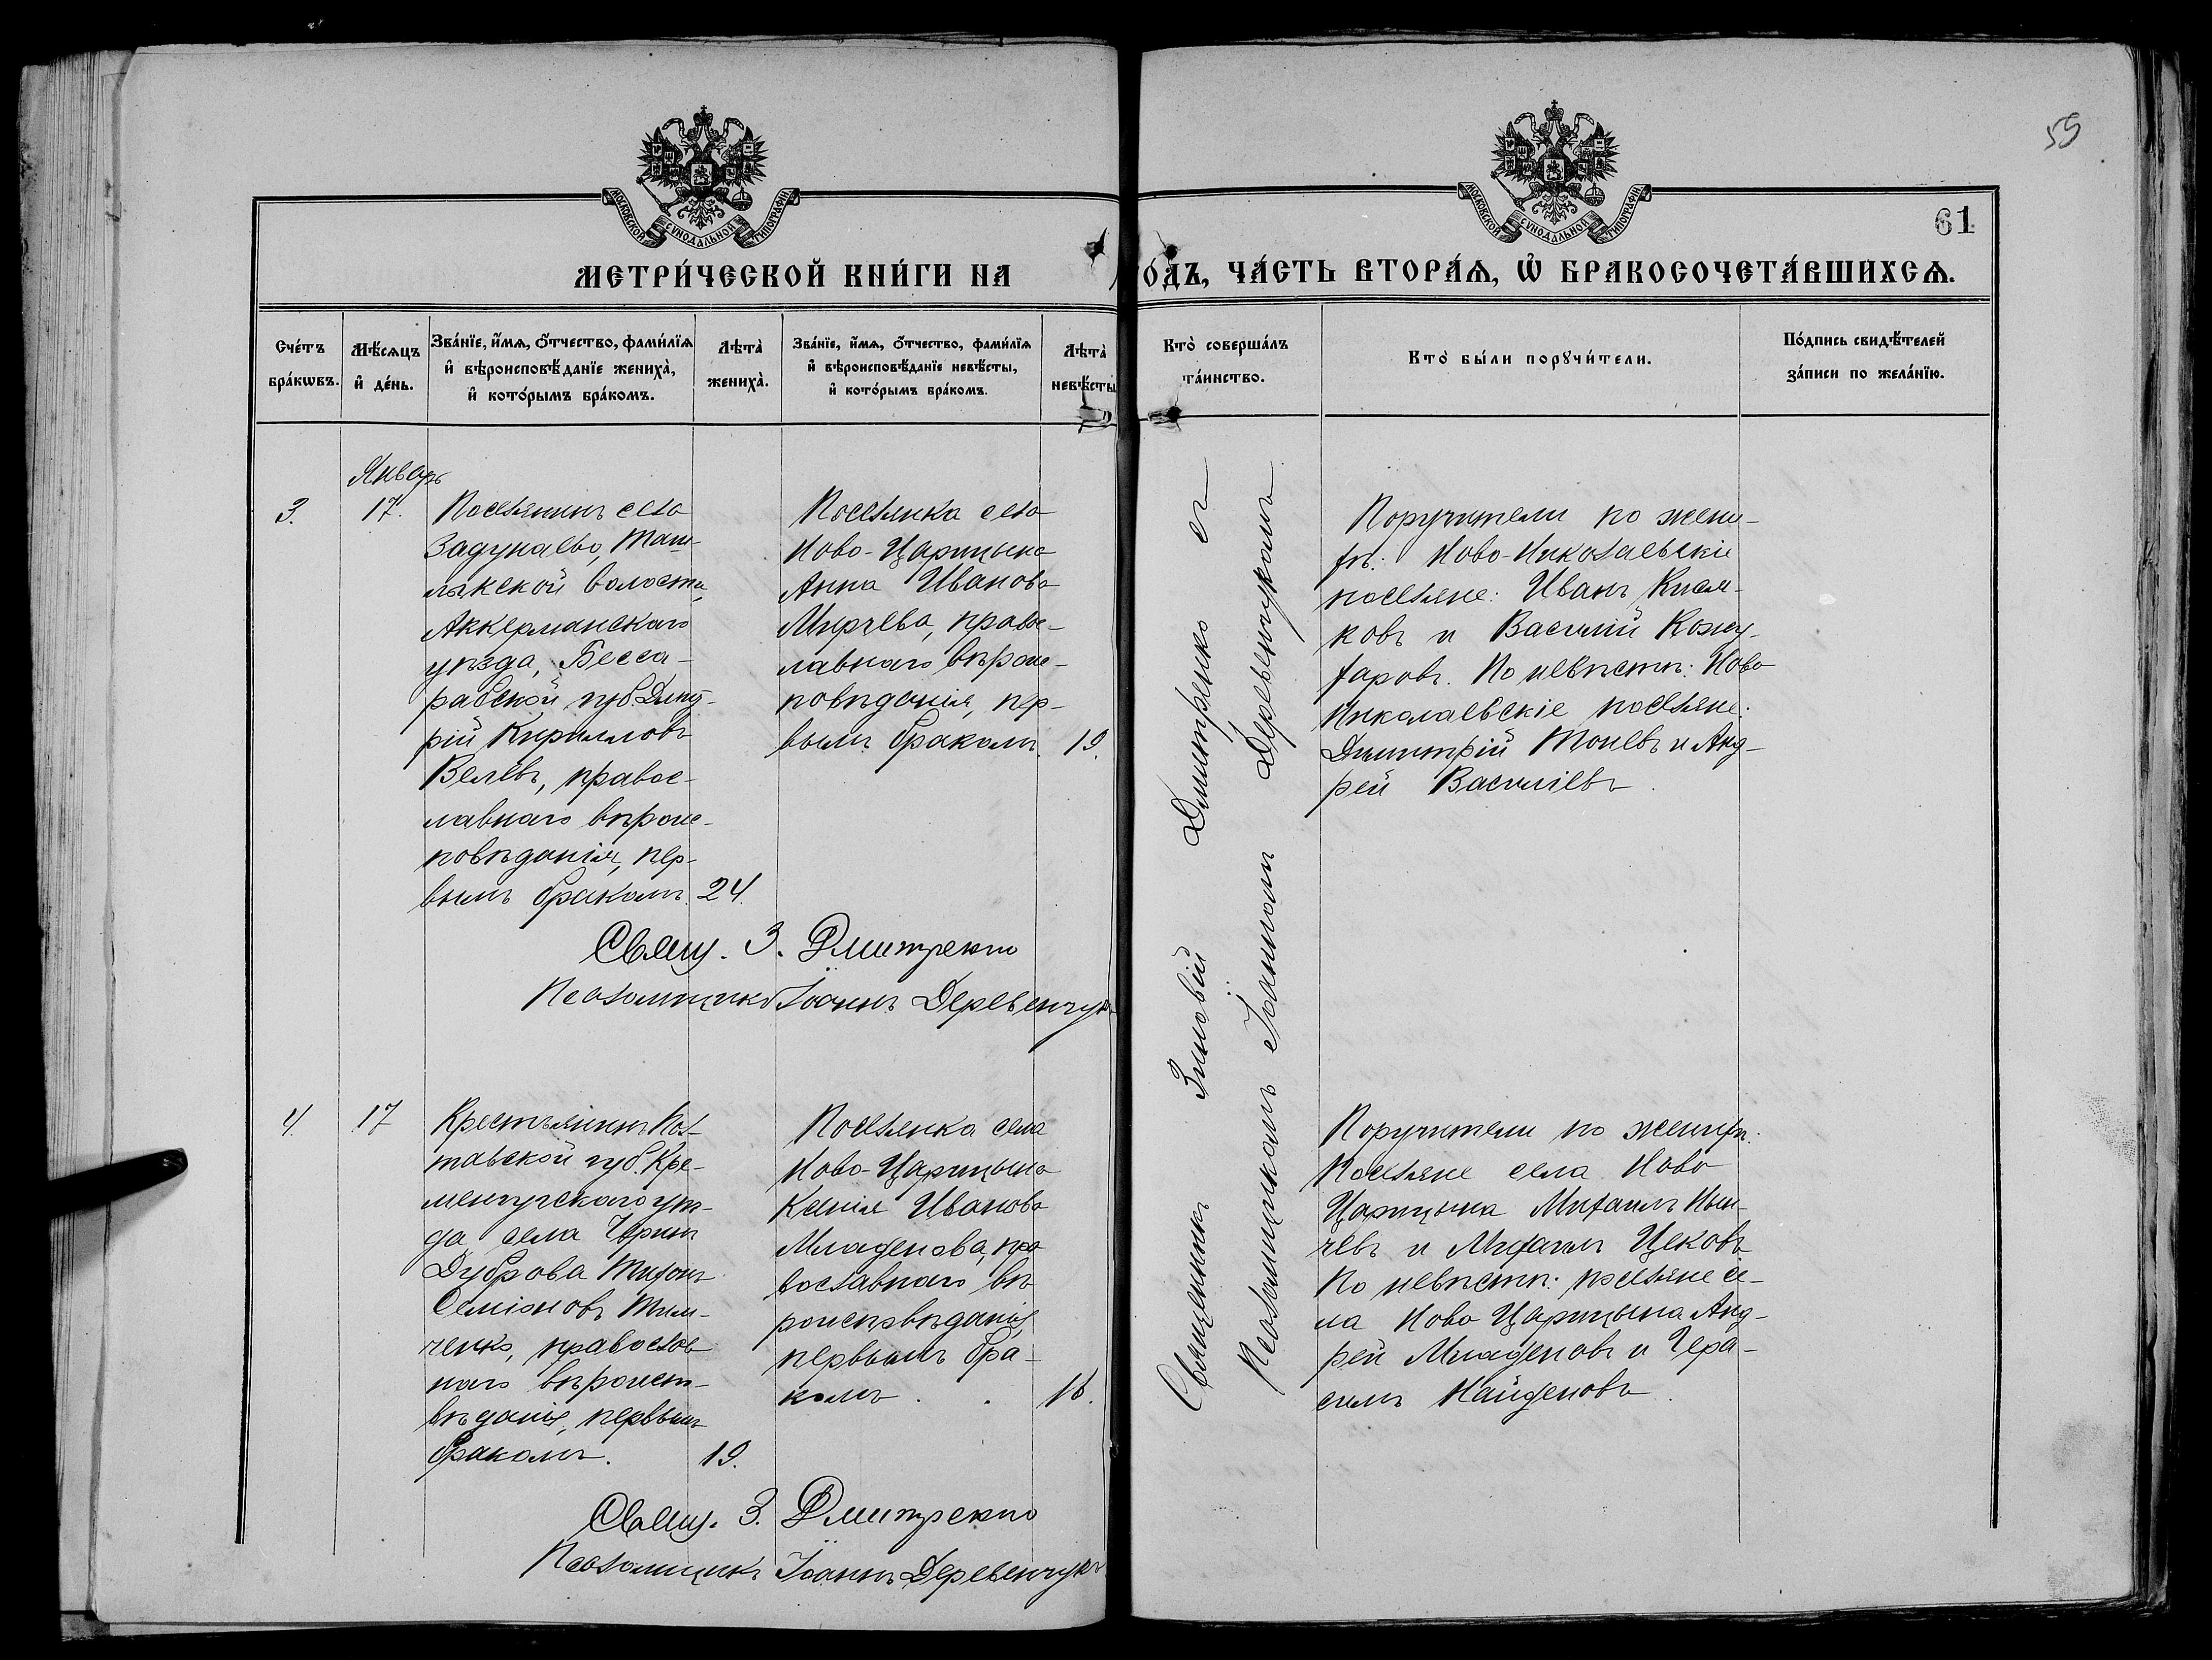 59
61
МОСКОВСКОЙ СУНОДАЛЬНОЙ ТИПОГРАФІИ
МОСКОВСКОЙ СУНОДАЛЬНОЙ ТИПОГРАФІИ
МЕТРИ́ЧЕСКОЙ КНИ́ГИ НА
ОДЪ, ЧА́СТЬ ВТОРА́Ѧ, Ѽ БРАКОСОЧЕТА́ВШИХСѦ.
Сче́тъ бра́кѡвъ.
Мѣ́сѧцъ и҆ де́нь.
Зва́нїе, и҆́мѧ, ѻ҆́тчество, фами́лїѧ и҆ вѣроисповѣ́данїе жениха̀, и҆ кото́рымъ бра́комъ.
Лѣта̀ жениха̀.
Зва́нїе, и҆́мѧ, ѻ҆́тчество, фами́лїѧ и҆ вѣроисповѣ́данїе невѣ́сты, и҆ кото́рымъ бра́комъ.
Лѣта̀ невѣ́сты
Кто̀ соверша́лъ та́инство.
Кто̀ бы́ли порꙋчи́тели.
По́дпись свидѣ́телей за́писи по жела́нїю.
Январь
3.
17.
Поселянинъ села
Задунаево, Таш-
лыкской волости,
Аккерманскаго
уѣзда, Бесса-
рабской губ. Дмит-
рій Кирилловъ
Велевъ, правос-
лавнаго вѣроис-
повѣданія, пер-
вымъ бракомъ.
24.
Поселянка села
Ново-Царицына
Анна Иванова
Мирчева, правос-
лавнаго вѣроис-
повѣданія, пер-
вымъ бракомъ.
19.
Свящ. З. Дмитренко
Псаломщикъ Іоаннъ Деревенчукъ
Священникъ Зиновій Дмитренко съ
Псаломщикомъ Іоанномъ Деревенчукомъ
Поручители по жени-
хѣ: Ново-Николаевскіе
поселяне: Иванъ Кися-
ковъ и Василій Кожу-
харовъ. По невѣстѣ: Ново
Николаевскіе поселяне:
Димитрій Тоневъ и Анд-
рей Василіевъ.
4.
17
Крестьянинъ Пол-
тавской губ. Кре-
менчугскаго уѣз-
да села
Дуброва Тихонъ
Семіоновъ Тим-
ченко, православ
наго вѣроиспо-
вѣданія, первымъ
бракомъ.
19.
Поселянка села
Ново-Царицына
Ксенія Иванова
Младенова, пра
вославнаго вѣ-
роисповѣданія,
первымъ бра-
комъ . .
16.
Поручители по женихѣ:
Поселяне села Ново
Царицына Михаилъ
чевъ и Михаилъ Цековъ
По невѣстѣ: поселяне се-
ла Ново Царицына Анд-
рей Младеновъ и Гера-
симъ Найденовъ.
Свящ. З. Дмитренко
Псаломщикъ Іоаннъ Деревенчукъ